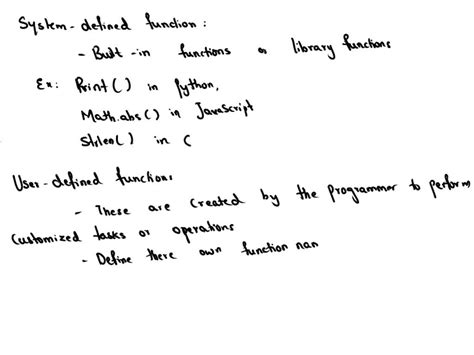 System-defined function:
- Built-in functions or library functions
Ex: Print() in Python,
Math.abs() in JavaScript
Strlen() in C
User-defined functions
- These are created by the programmer to perform
customized tasks or operations
- Define there own function nam